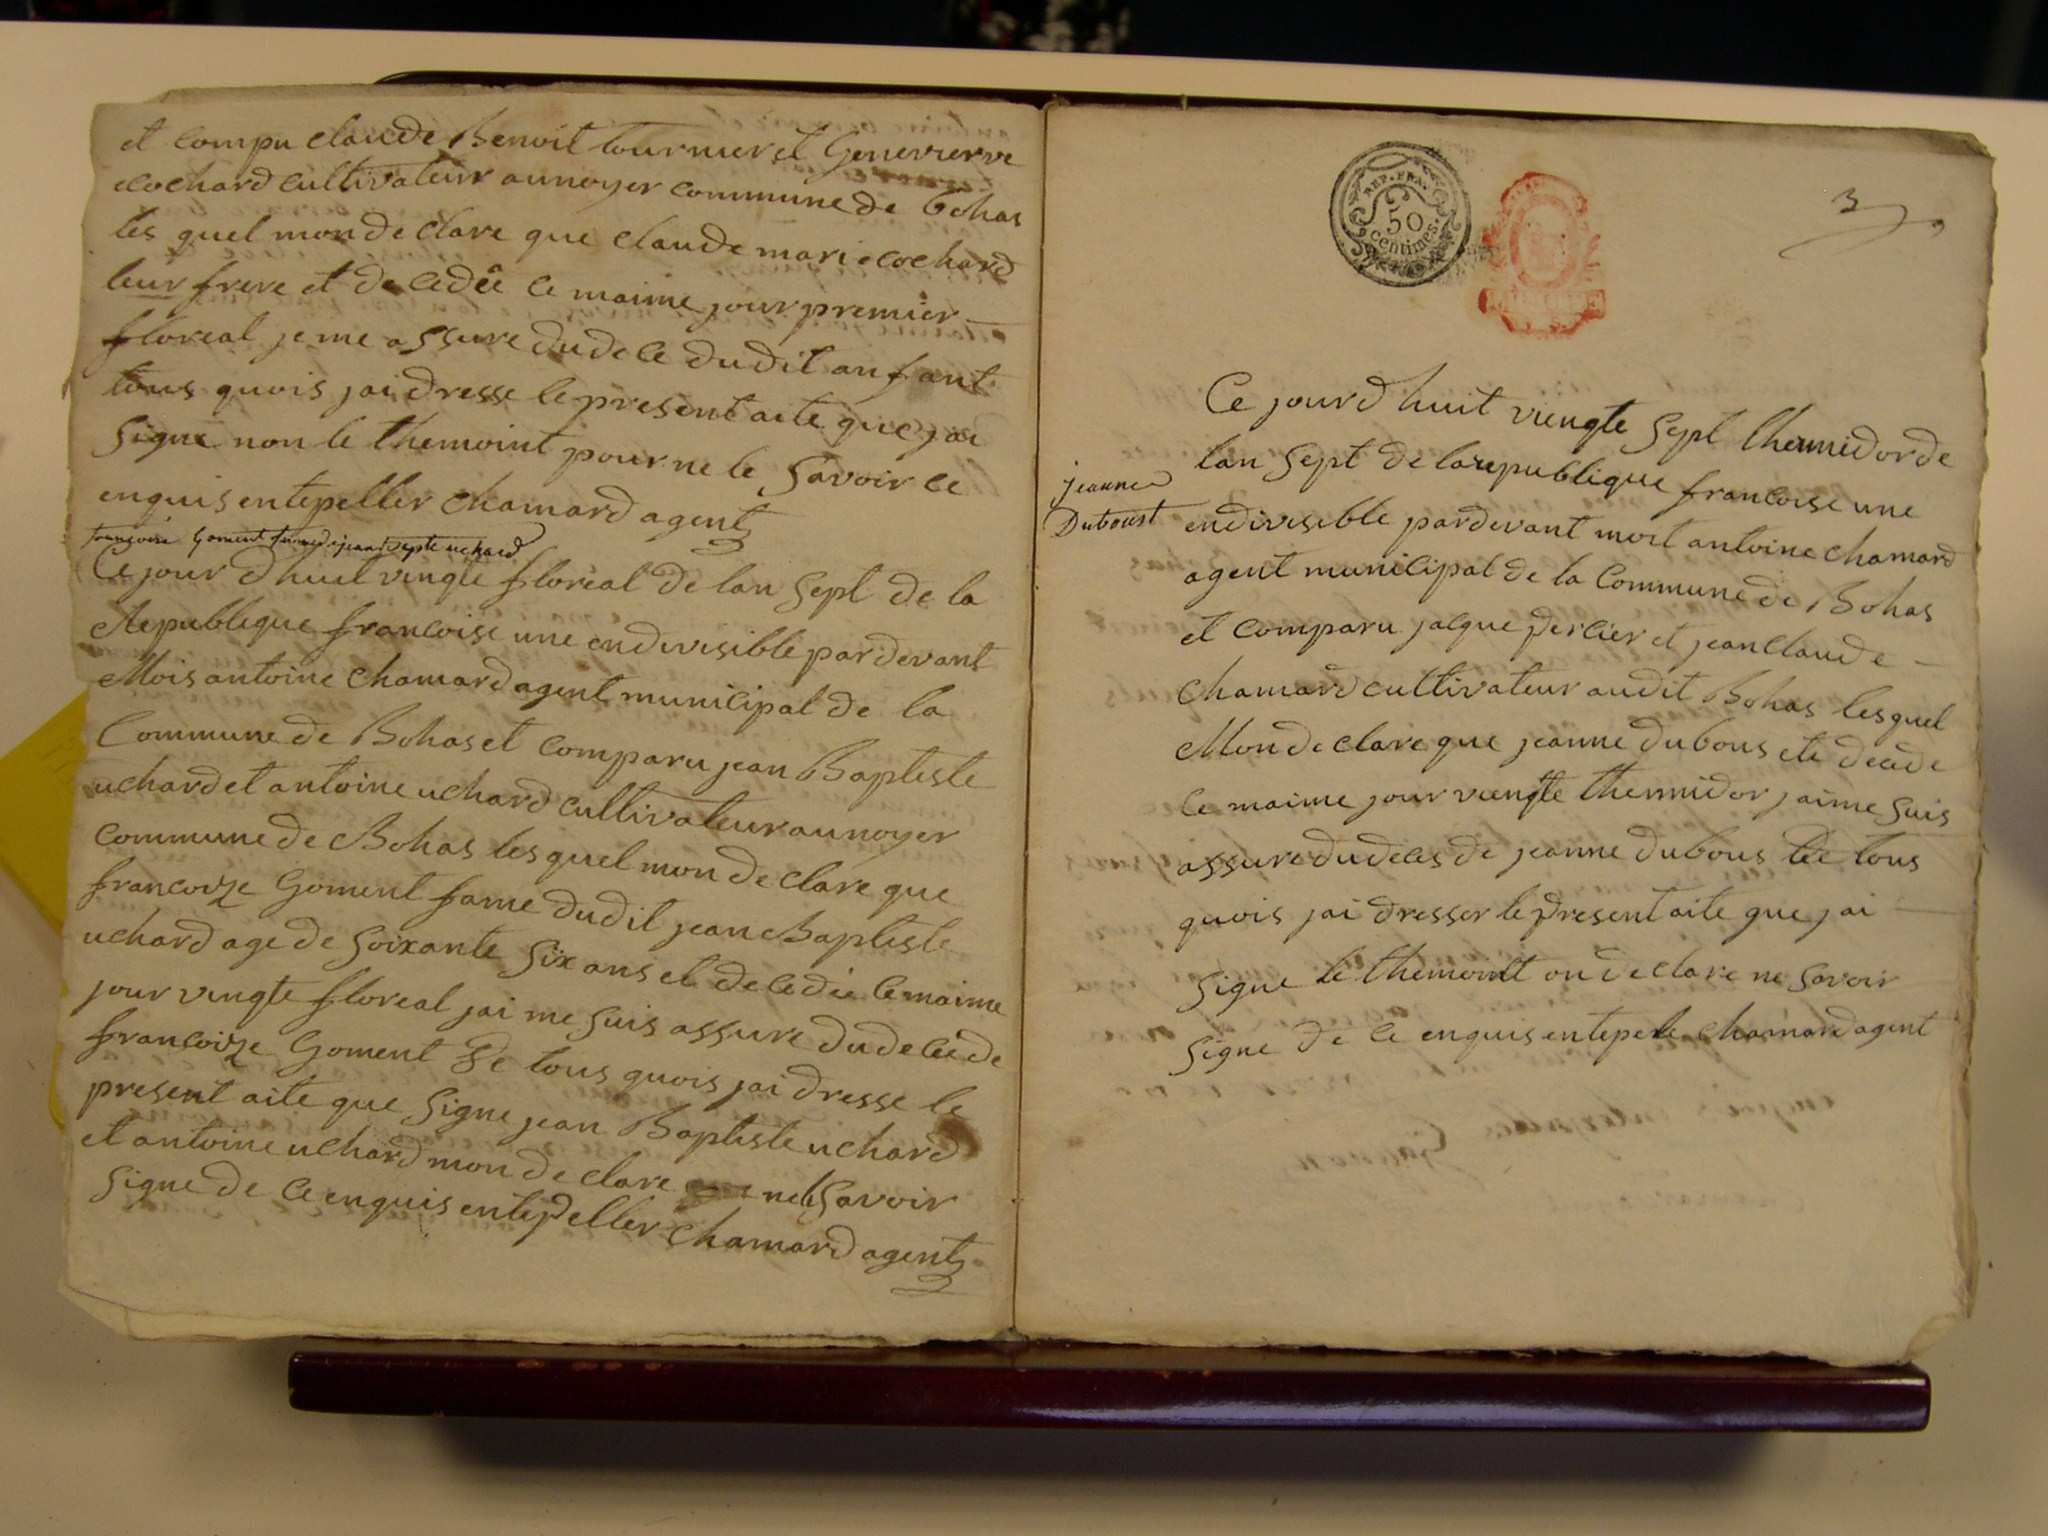 et compu claude Benoit tournier et Genevierve
cochard cultivateur aunoyer commune de bohas
les quel mon de clare que claude marie cochard
leur frere et de cedée le maime jour premier
floreal je me assure du de ce du dit anfant
tous quois jai dresse le present aite que jai
signe non le themoint pour ne le savoir ce
enquis entepeller chamard agent
francoise Goment fame de jean Bapte uchard
Ce jour dhuit vingte floreal de lan sept de la
Republique francoise une endivisible par devant
Mois antoine chamard agent municipal de la
Commune de Bohas et comparu jean Baptiste
uchard et antoine uchard cultivateur aunoyer
commune de Bohas les quel mon de clare que
francoize Goment fame du dit jean Baptiste
uchard age de soixante six ans et de cedée le maime
jour vingte floreal jai me suis assure du de cée de
francoize Goment De tous quois jai dresse le
present aite que signe jean Baptiste uchard
et antoine uchard mon de clare ne savoir
signe de ce enquis entepeller chamard agent
REP. FRA.
50
centimes.
3
Ce jour dhuit viengte sept thermidor de
lan sept de la republique francoise une
jeanne
Duboust
endivisible par devant moit antoine chamard
agent municipal de la Commune de Bohas
et comparu jacque percier et jean claude
chamard cultivateur audit Bohas lesquel
Mon de clare que jeanne dubous ete decide
le maime jour viengte thermidor jaime suis
assure du deces de jeanne dubous De tous
quois jai dresser le present aite que jai
signe le themoint on de clare ne savoir
signe de ce enquis entepele chamard agent